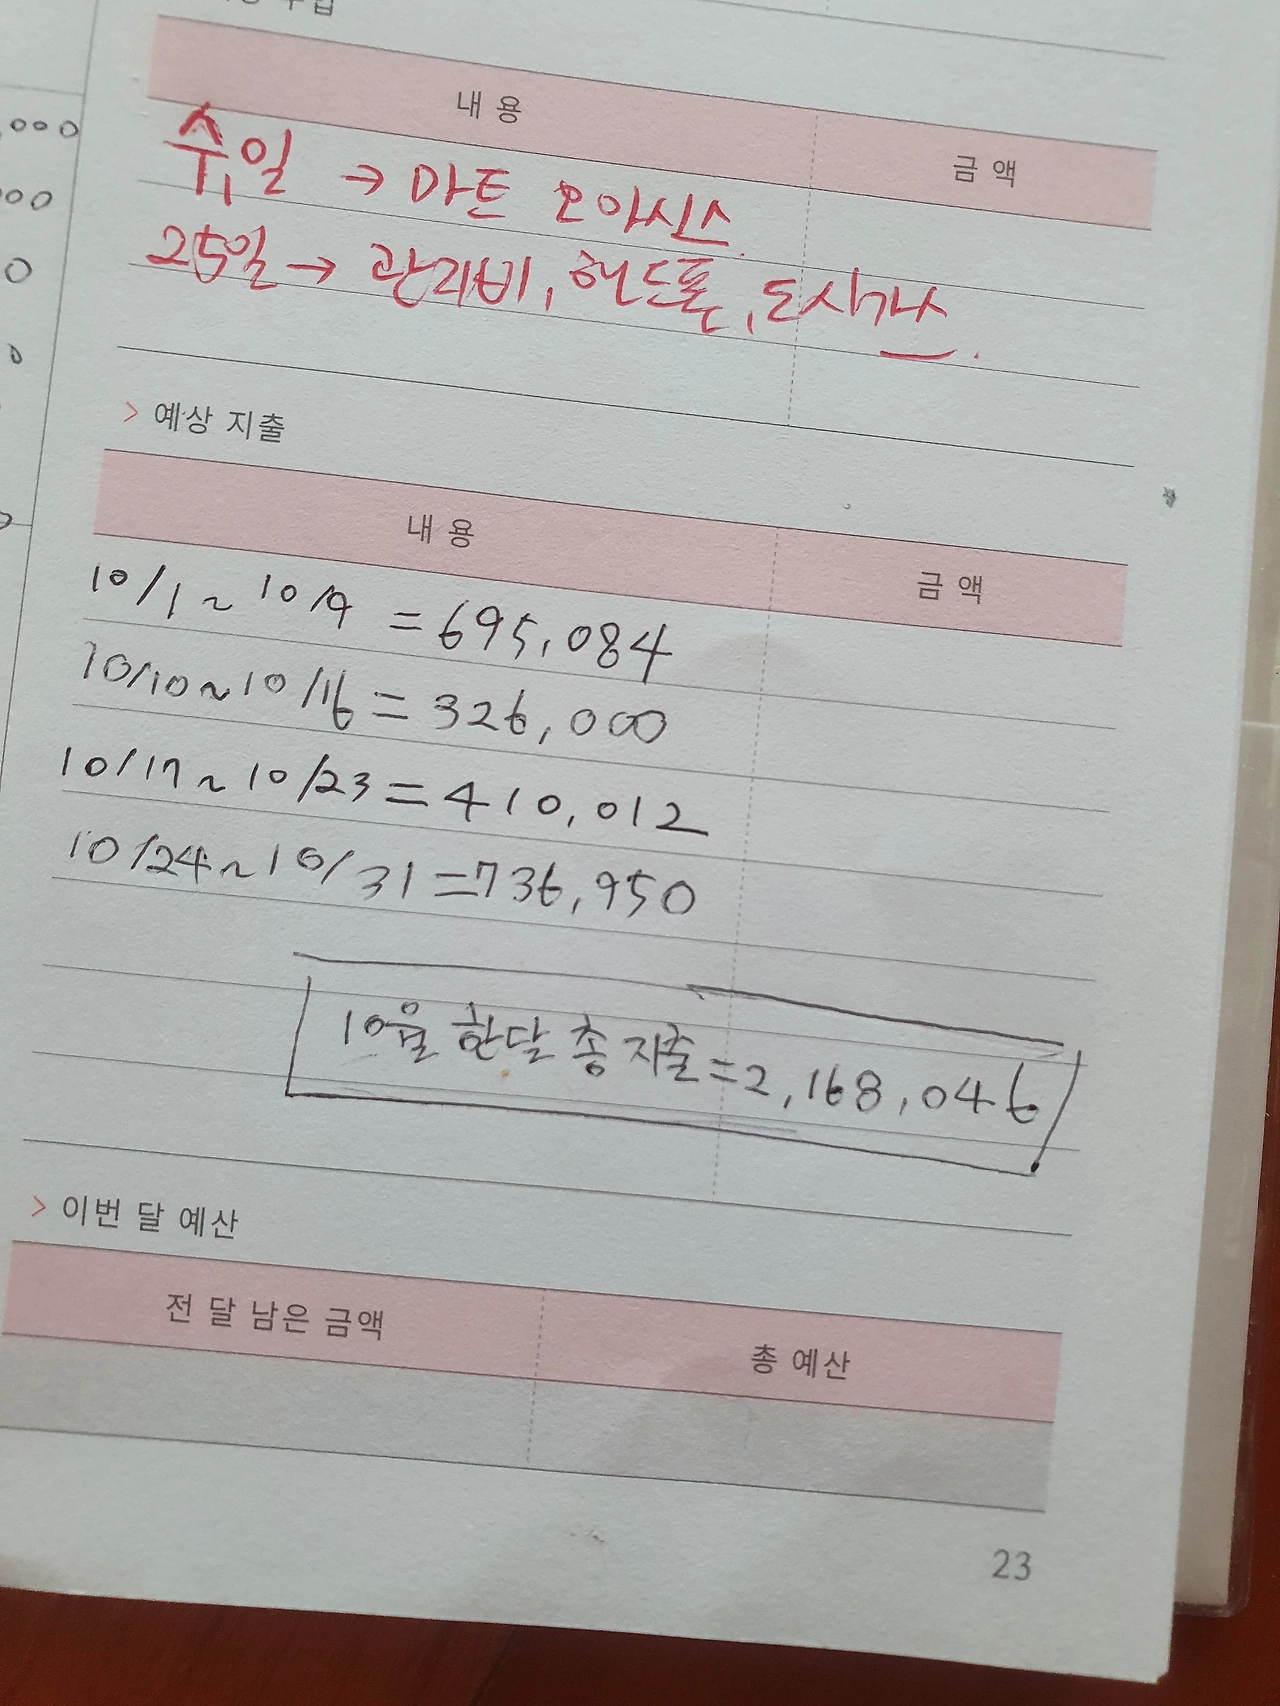 내 용 금 액
수,일 → 마트 오아시스.
25일 → 관리비, 핸드폰, 도시가스.
> 예상 지출
내 용 금 액
10/1 ~ 10/9 = 695,084
10/10 ~ 10/16 = 326,000
10/17 ~ 10/23 = 410,012
10/24 ~ 10/31 = 736,950
10월 한달 총 지출 = 2,168,046
> 이번 달 예산
전 달 남은 금액 총 예산
23